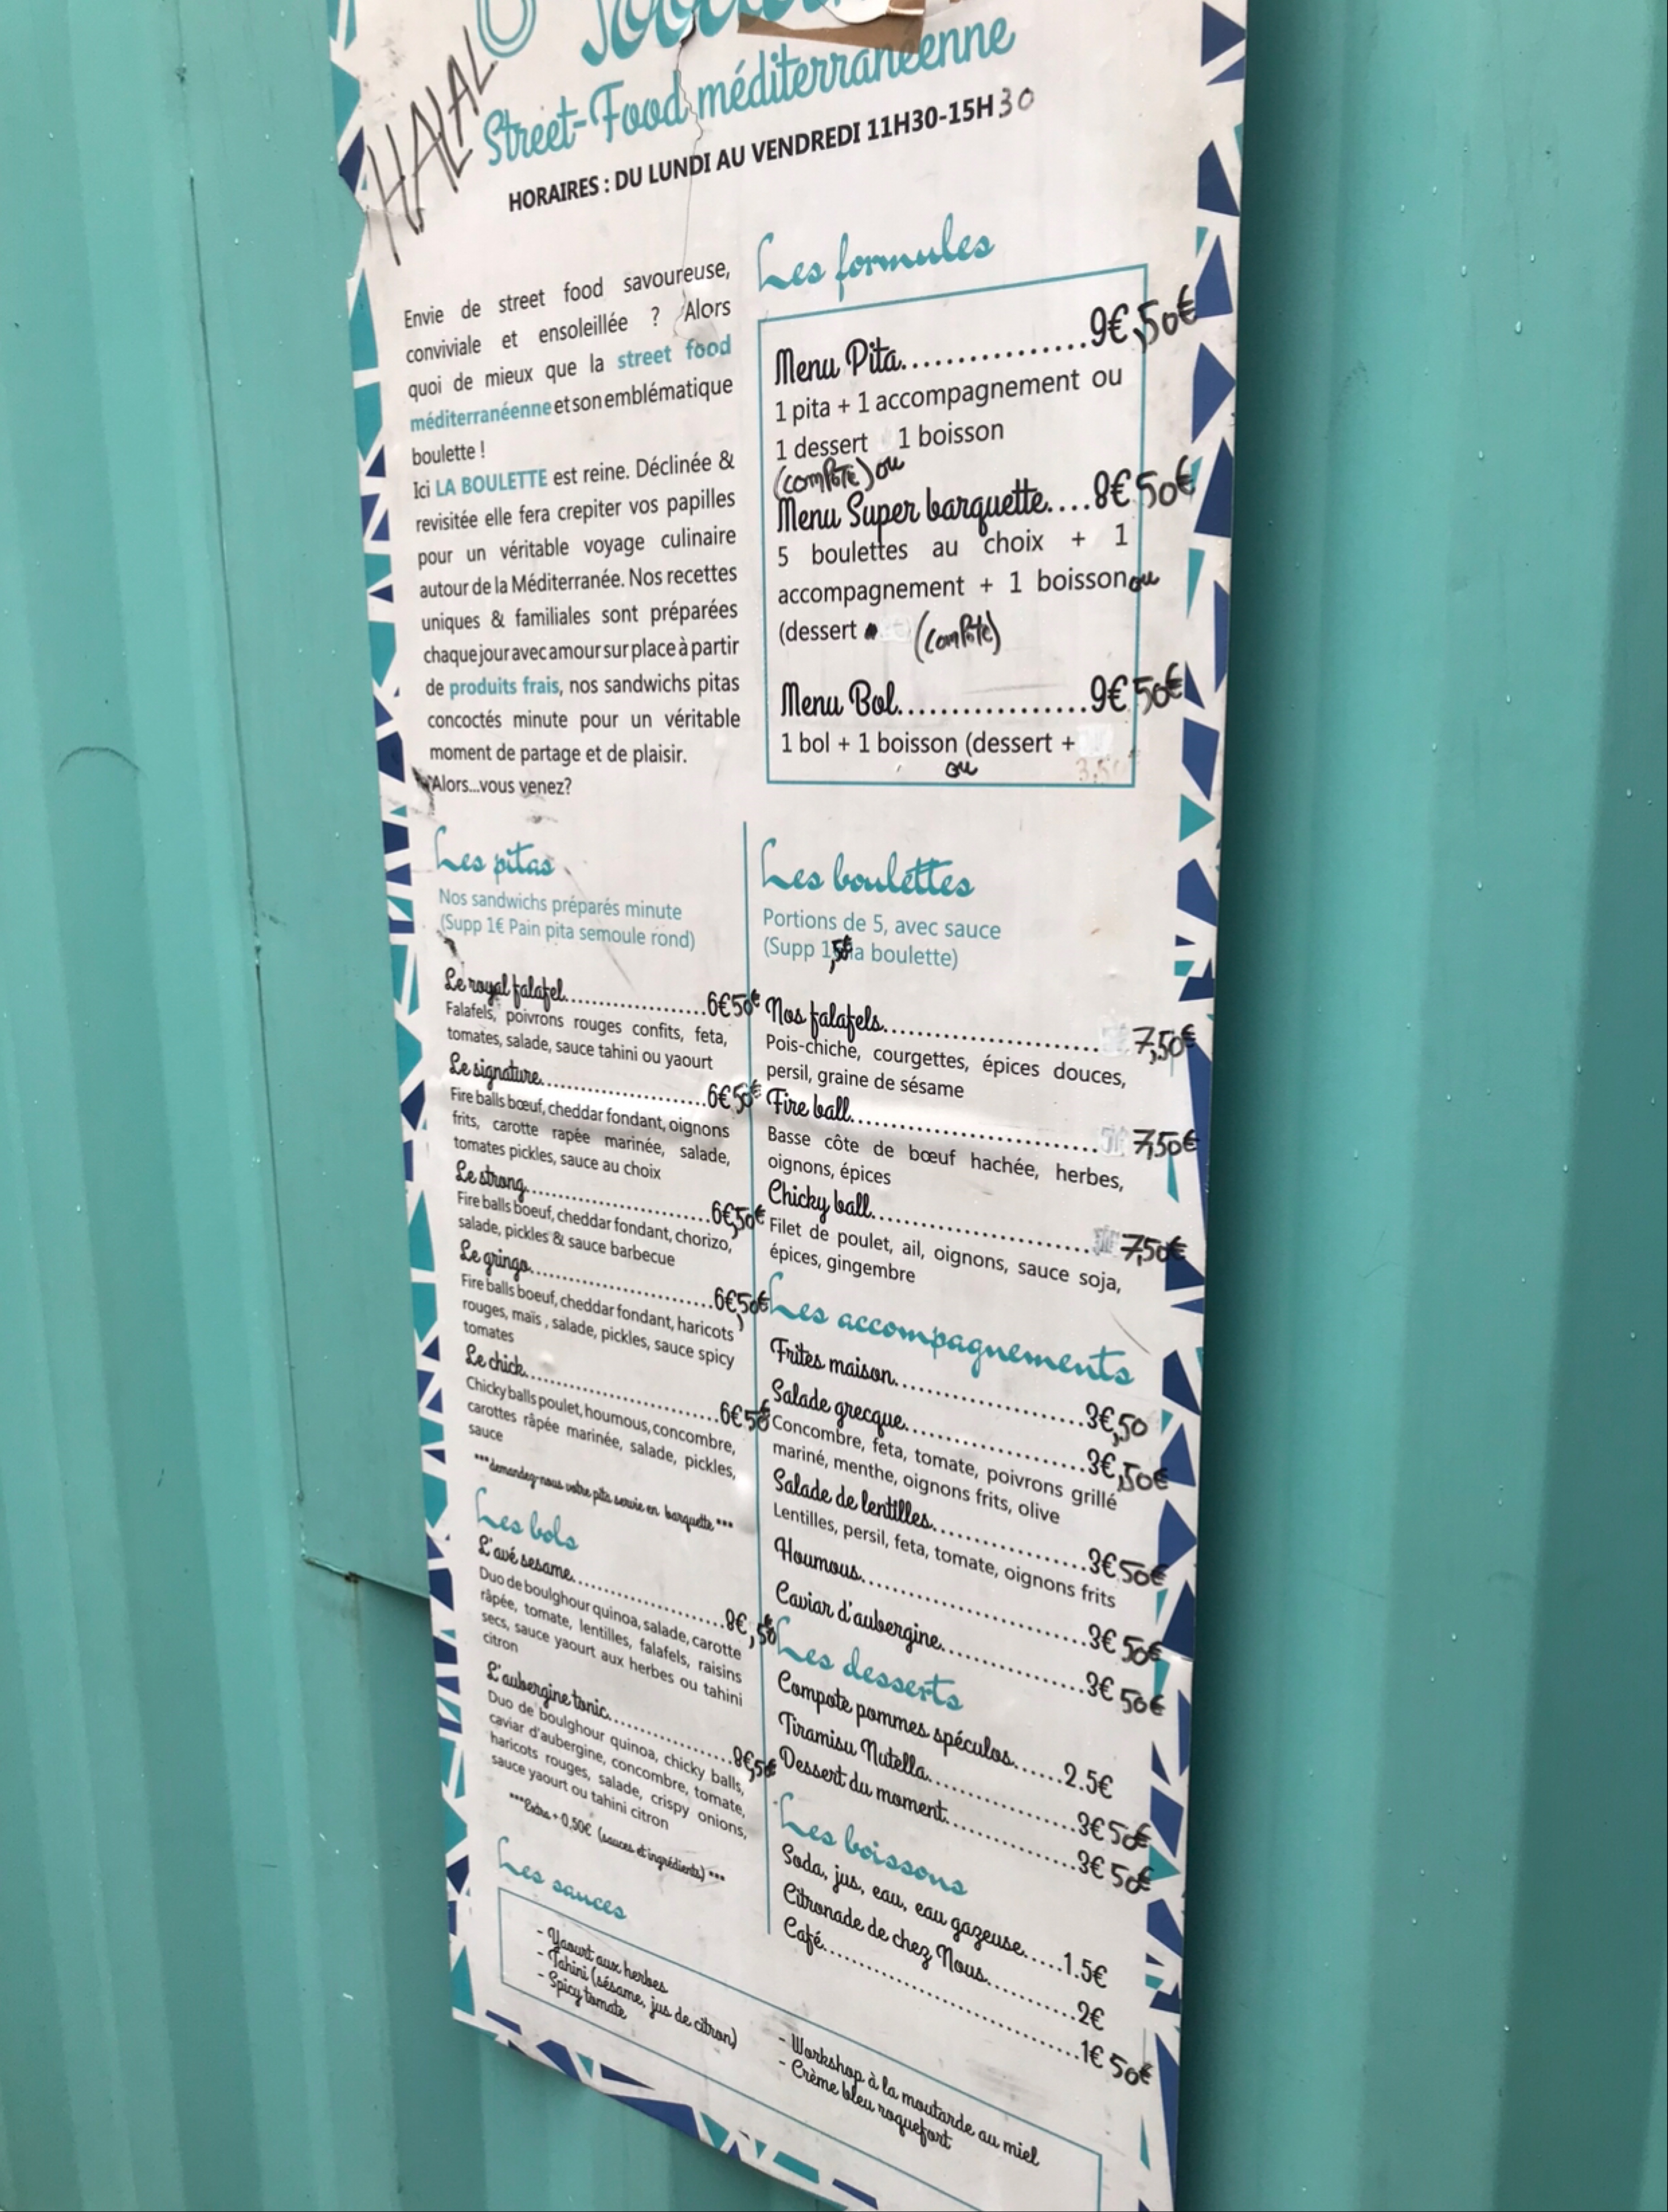 HALAL
Street-Food méditerranéenne
HORAIRES : DU LUNDI AU VENDREDI 11H30-15H30
Envie de street food savoureuse,
conviviale et ensoleillée ? Alors
quoi de mieux que la street food
méditerranéenne et son emblématique
boulette !
Ici LA BOULETTE est reine. Déclinée &
revisitée elle fera crepiter vos papilles
pour un véritable voyage culinaire
autour de la Méditerranée. Nos recettes
uniques & familiales sont préparées
chaque jour avec amour sur place à partir
de produits frais, nos sandwichs pitas
concoctés minute pour un véritable
moment de partage et de plaisir.
Alors...vous venez?
Les formules
Menu Pita................9€,50€
1 pita + 1 accompagnement ou
1 dessert 1 boisson
(compote) ou
Menu Super barquette....8€50€
5 boulettes au choix + 1
accompagnement + 1 boisson ou
(dessert (compote)
Menu Bol.................9€50€
1 bol + 1 boisson (dessert +
ou
Les pitas
Nos sandwichs préparés minute
(Supp 1€ Pain pita semoule rond)
Le royal falafel..................6€50€
Falafels, poivrons rouges confits, feta,
tomates, salade, sauce tahini ou yaourt
Le signature.....................6€50€
Fire balls bœuf, cheddar fondant, oignons
frits, carotte rapée marinée, salade,
tomates pickles, sauce au choix
Le strong.......................6€,50€
Fire balls boeuf, cheddar fondant, chorizo,
salade, pickles & sauce barbecue
Le gringo.......................6€50€
Fire balls boeuf, cheddar fondant, haricots
rouges, maïs , salade, pickles, sauce spicy
tomates
Le chick........................6€50€
Chicky balls poulet, houmous, concombre,
carottes râpée marinée, salade, pickles,
sauce
***demandez-nous votre pita servie en barquette ***
Les bols
L'avé sesame....................8€,50
Duo de boulghour quinoa, salade, carotte
râpée, tomate, lentilles, falafels, raisins
secs, sauce yaourt aux herbes ou tahini
citron
L'aubergine tonic...............8€,5€
Duo de boulghour quinoa, chicky balls,
caviar d'aubergine, concombre, tomate,
haricots rouges, salade, crispy onions,
sauce yaourt ou tahini citron
***Extra + 0,50€ (sauces et ingrédients) ***
Les boulettes
Portions de 5, avec sauce
(Supp 1,5€ la boulette)
Nos falafels........................7,50€
Pois-chiche, courgettes, épices douces,
persil, graine de sésame
Fire ball...........................7,50€
Basse côte de bœuf hachée, herbes,
oignons, épices
Chicky ball.........................7,50€
Filet de poulet, ail, oignons, sauce soja,
épices, gingembre
Les accompagnements
Frites maison....................3€,50
Salade grecque...................3€,50€
Concombre, feta, tomate, poivrons grillé
mariné, menthe, oignons frits, olive
Salade de lentilles..............3€50€
Lentilles, persil, feta, tomate, oignons frits
Houmous..........................3€50€
Caviar d'aubergine...............3€50€
Les desserts
Compote pommes spéculos......2.5€
Tiramisu Nutella.................3€50€
Dessert du moment................3€50€
Les boissons
Soda, jus, eau, eau gazeuse....1.5€
Citronade de chez Nous...........2€
Café.............................1€50€
Les sauces
- Yaourt aux herbes
- Tahini (sésame, jus de citron)
- Spicy tomate
- Workshop à la moutarde au miel
- Crème bleu roquefort